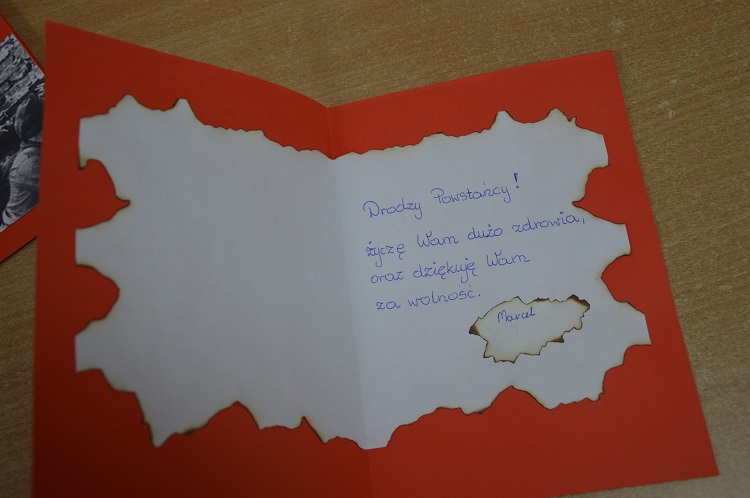 Drodzy Powstańcy!
życzę Wam dużo zdrowia,
oraz dziękuję Wam
za wolność.
Marcel